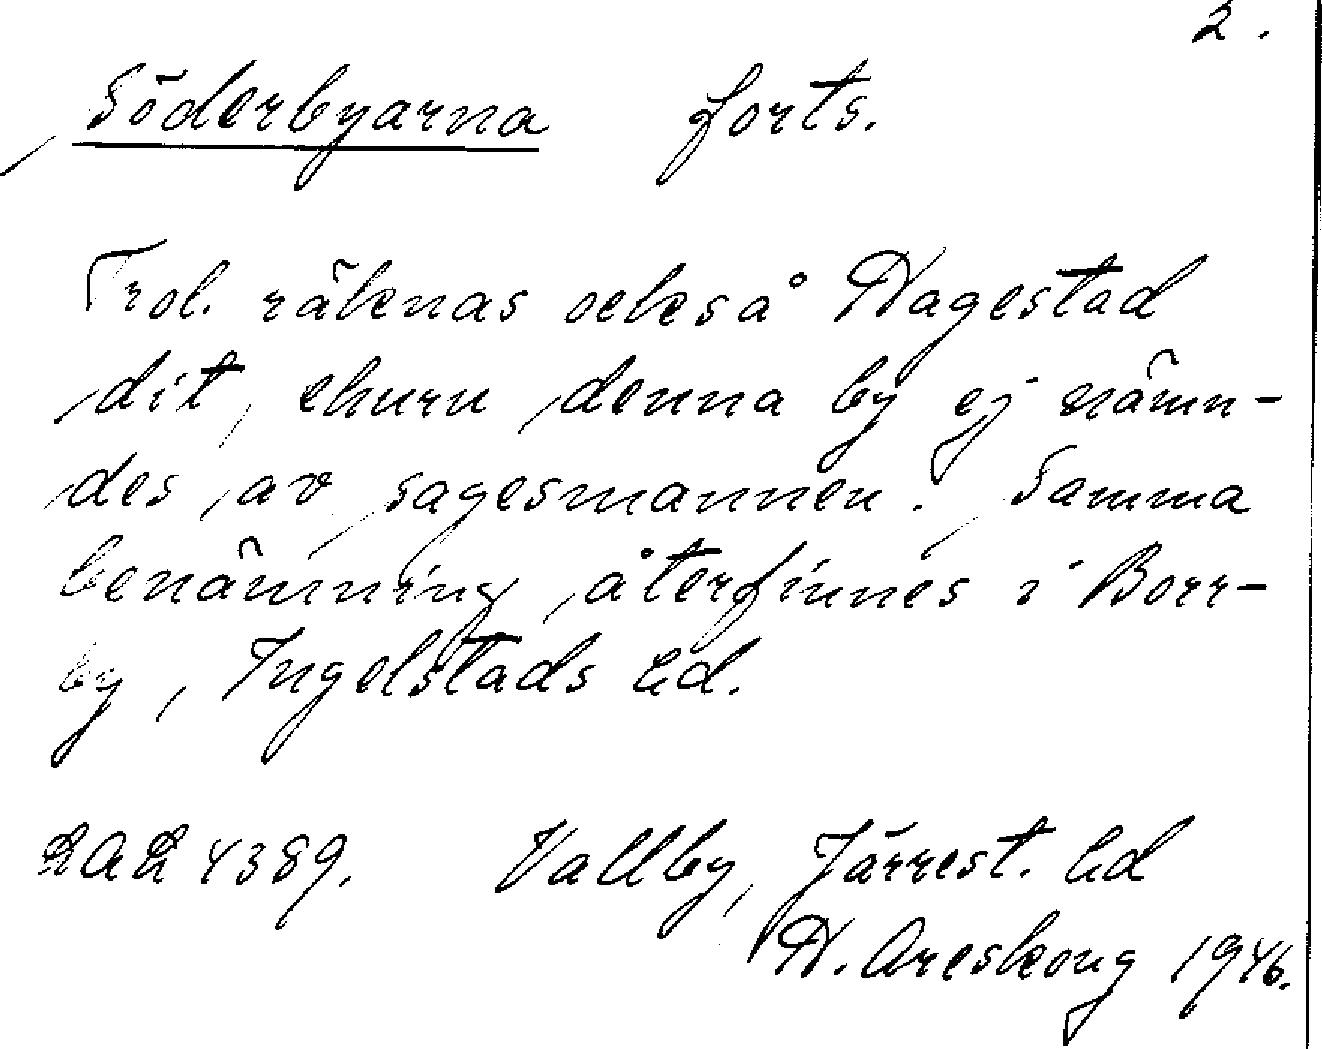 2.
Söderbyarna forts.
Trol. räknas också Hagestad
dit, ehuru denna by ej näm-
des av sagesmannen. Samma
benämning återfinnes i Borr-
by, Ingelstads hd.
LAL 4389. Vallby, Järrest. hd
H. Areskoug 1946.